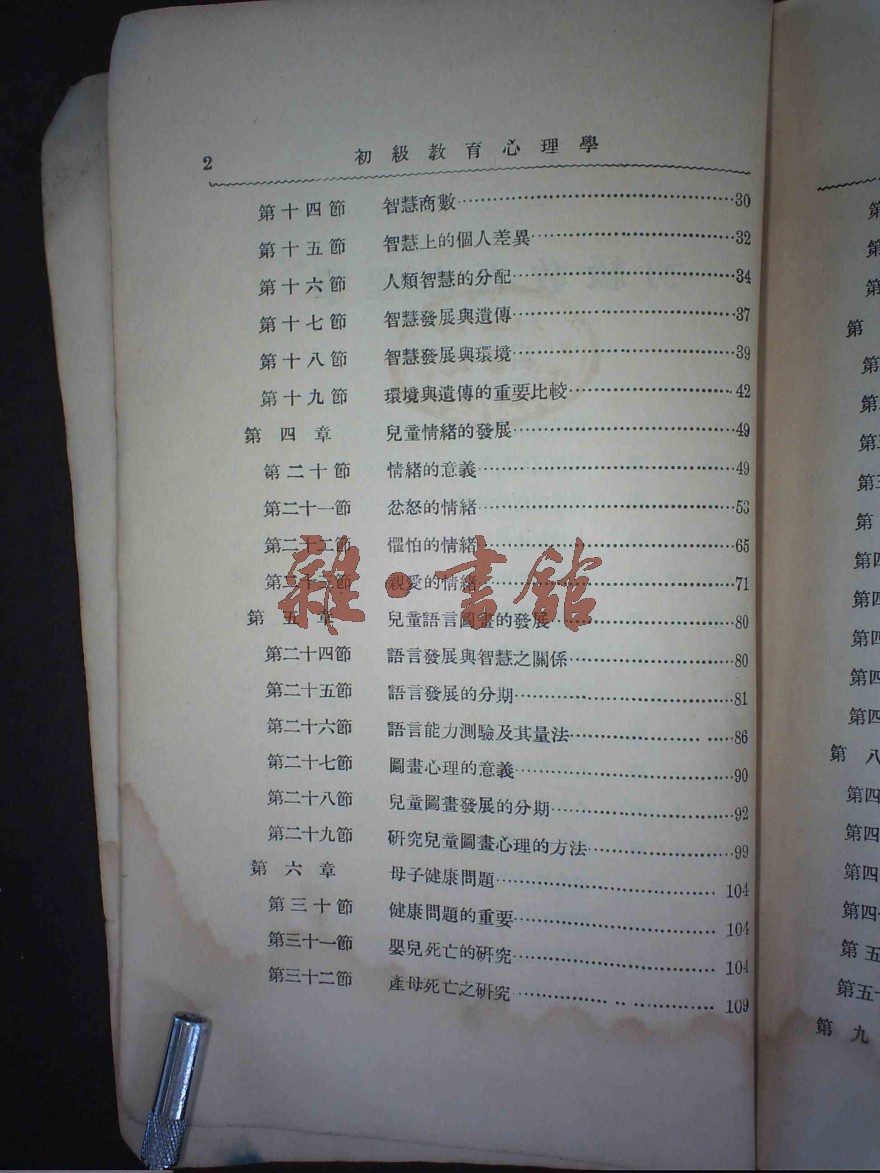 2
初級教育心理學
第十四節 智慧商數……30
第十五節 智慧上的個人差異……32
第十六節 人類智慧的分配……34
第十七節 智慧發展與遺傳……37
第十八節 智慧發展與環境……39
第十九節 環境與遺傳的重要比較……42
第四章 兒童情緒的發展……49
第二十節 情緒的意義……49
第二十一節 忿怒的情緒……53
第二十二節 懼怕的情緒……65
第二十三節 親愛的情緒……71
第五章 兒童語言圖畫的發展……80
第二十四節 語言發展與智慧之關係……80
第二十五節 語言發展的分期……81
第二十六節 語言能力測驗及其量法……86
第二十七節 圖畫心理的意義……90
第二十八節 兒童圖畫發展的分期……92
第二十九節 研究兒童圖畫心理的方法……99
第六章 母子健康問題……104
第三十節 健康問題的重要……104
第三十一節 嬰兒死亡的研究……104
第三十二節 產母死亡之研究……109
雜·書館
第
第
第
第八
第四
第四
第四
第五
第五十
第九